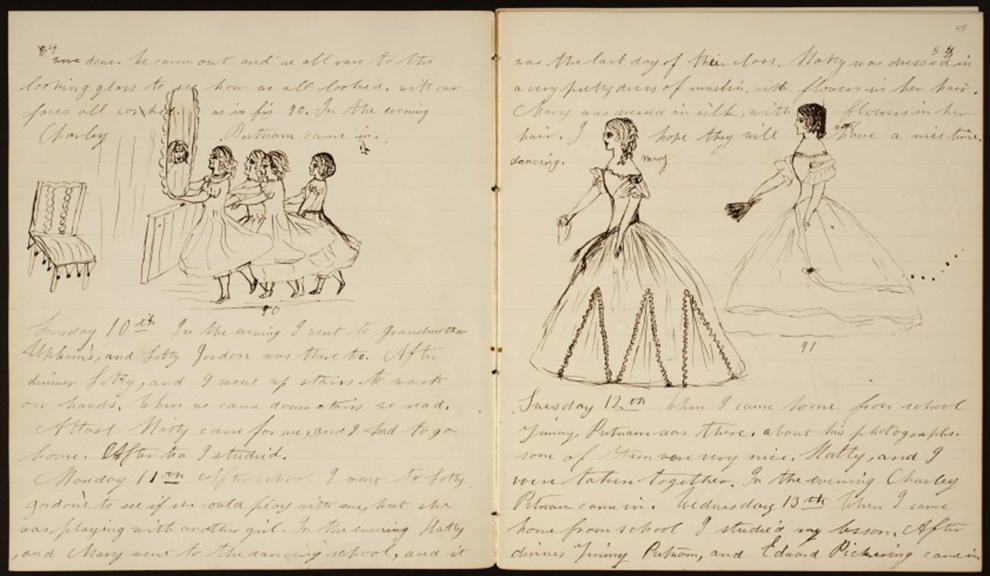 54
were done. He came out and we all ran to the
looking glass to see how we all looked, with our
faces all corked, as in fig 90. In the evening
Charley Putnam came in.
90
Sunday 10th In the evening I went to grandmother
Upham's, and Lotty Jordon was there to. After
dinner Lotty, and I went up stairs to wash
our hands. When we came downstairs we read.
Atlast Hatty came for me, and I had to go
home. After tea I studied.
Monday 11th After school I went to Lotty
gordon's to see if she could play with me, but she
was playing with another girl. In the evening Hatty
and Mary went to the dancing school, and it
55
was the last day of their class. Hatty was dressed in
a very pretty dress of muslin, with flowers in her hair.
Mary was dressed in silk, with flowers in her
hair. I hope they will have a nice time
dancing.
Mary
91
Tuesday 12th When I came home from school
Jimmy Putnam was there, about his photographs.
some of them were very nice. Hatty, and I
were taken together. In the evening Charley
Putnam came in. Wednesday 13th When I came
home from school I studied my lesson. After
dinner Jimmy Putnam, and Edward Pickering came in